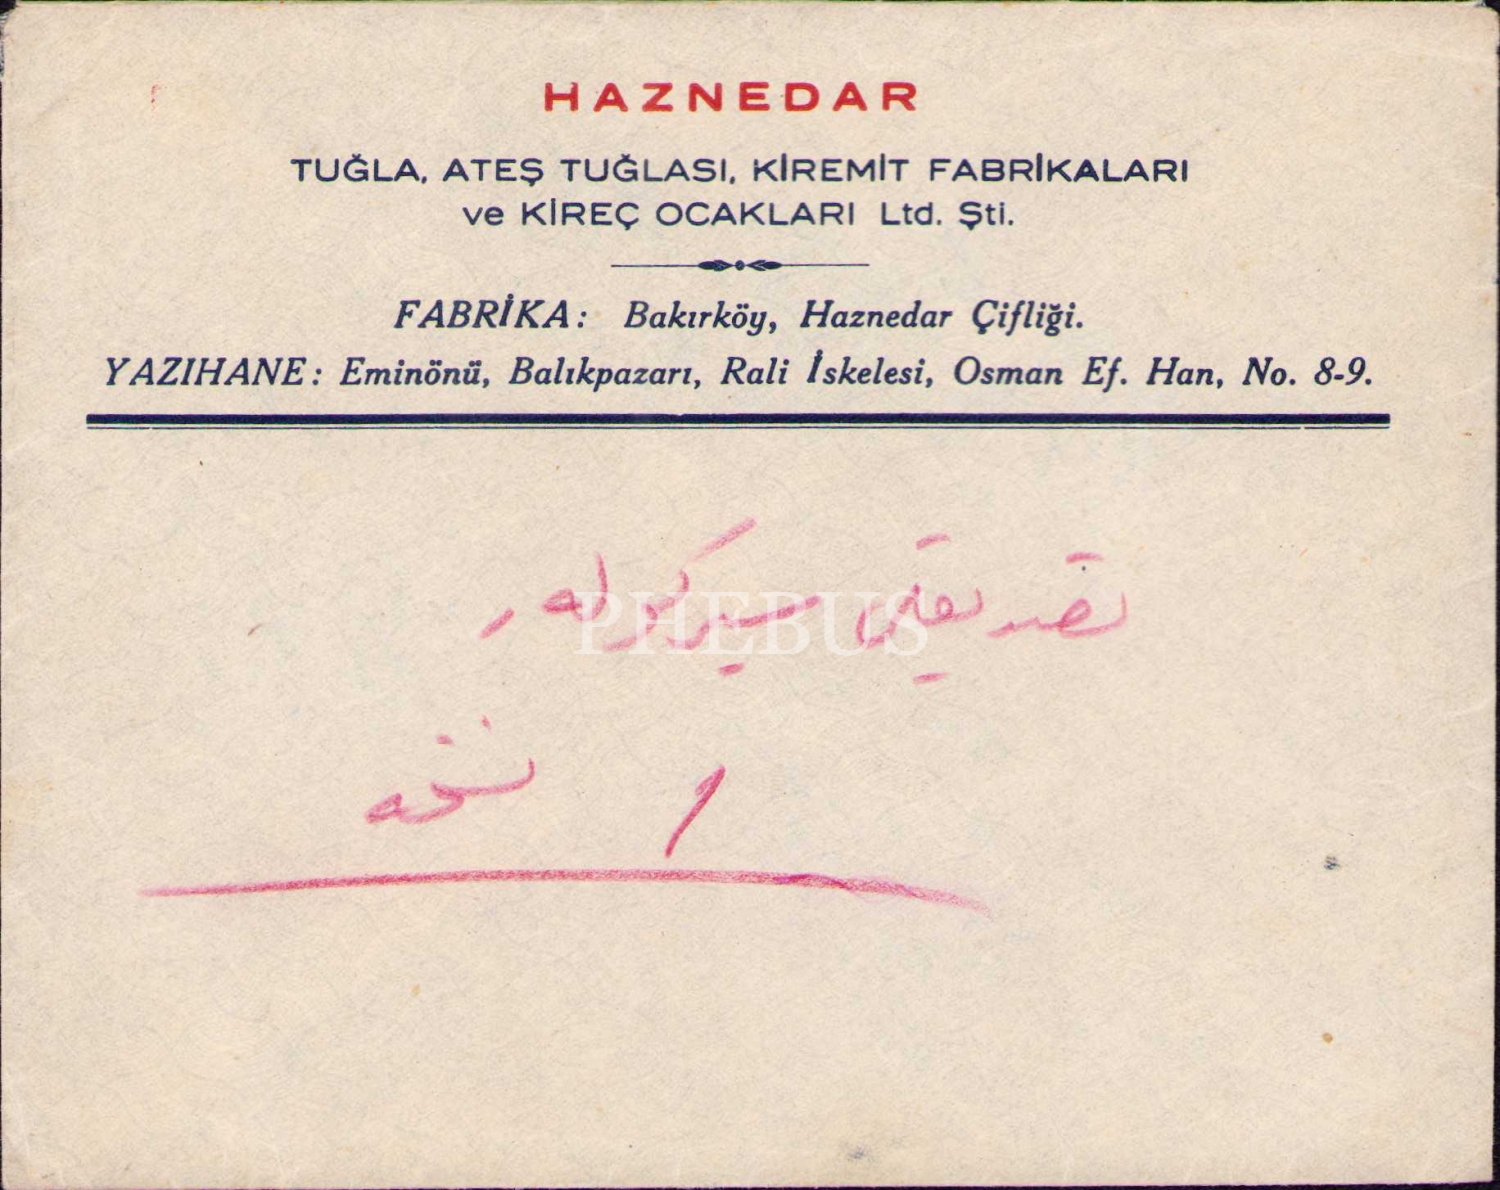 HAZNEDAR
TUĞLA, ATEŞ TUĞLASI, KİREMİT FABRİKALARI
ve KİREÇ OCAKLARI Ltd. Şti.
FABRİKA: Bakırköy, Haznedar Çifliği.
YAZIHANE: Eminönü, Balıkpazarı, Rali İskelesi, Osman Ef. Han, No. 8-9.
تصديقلى سيركولر
PHEBUS
١ نسخه